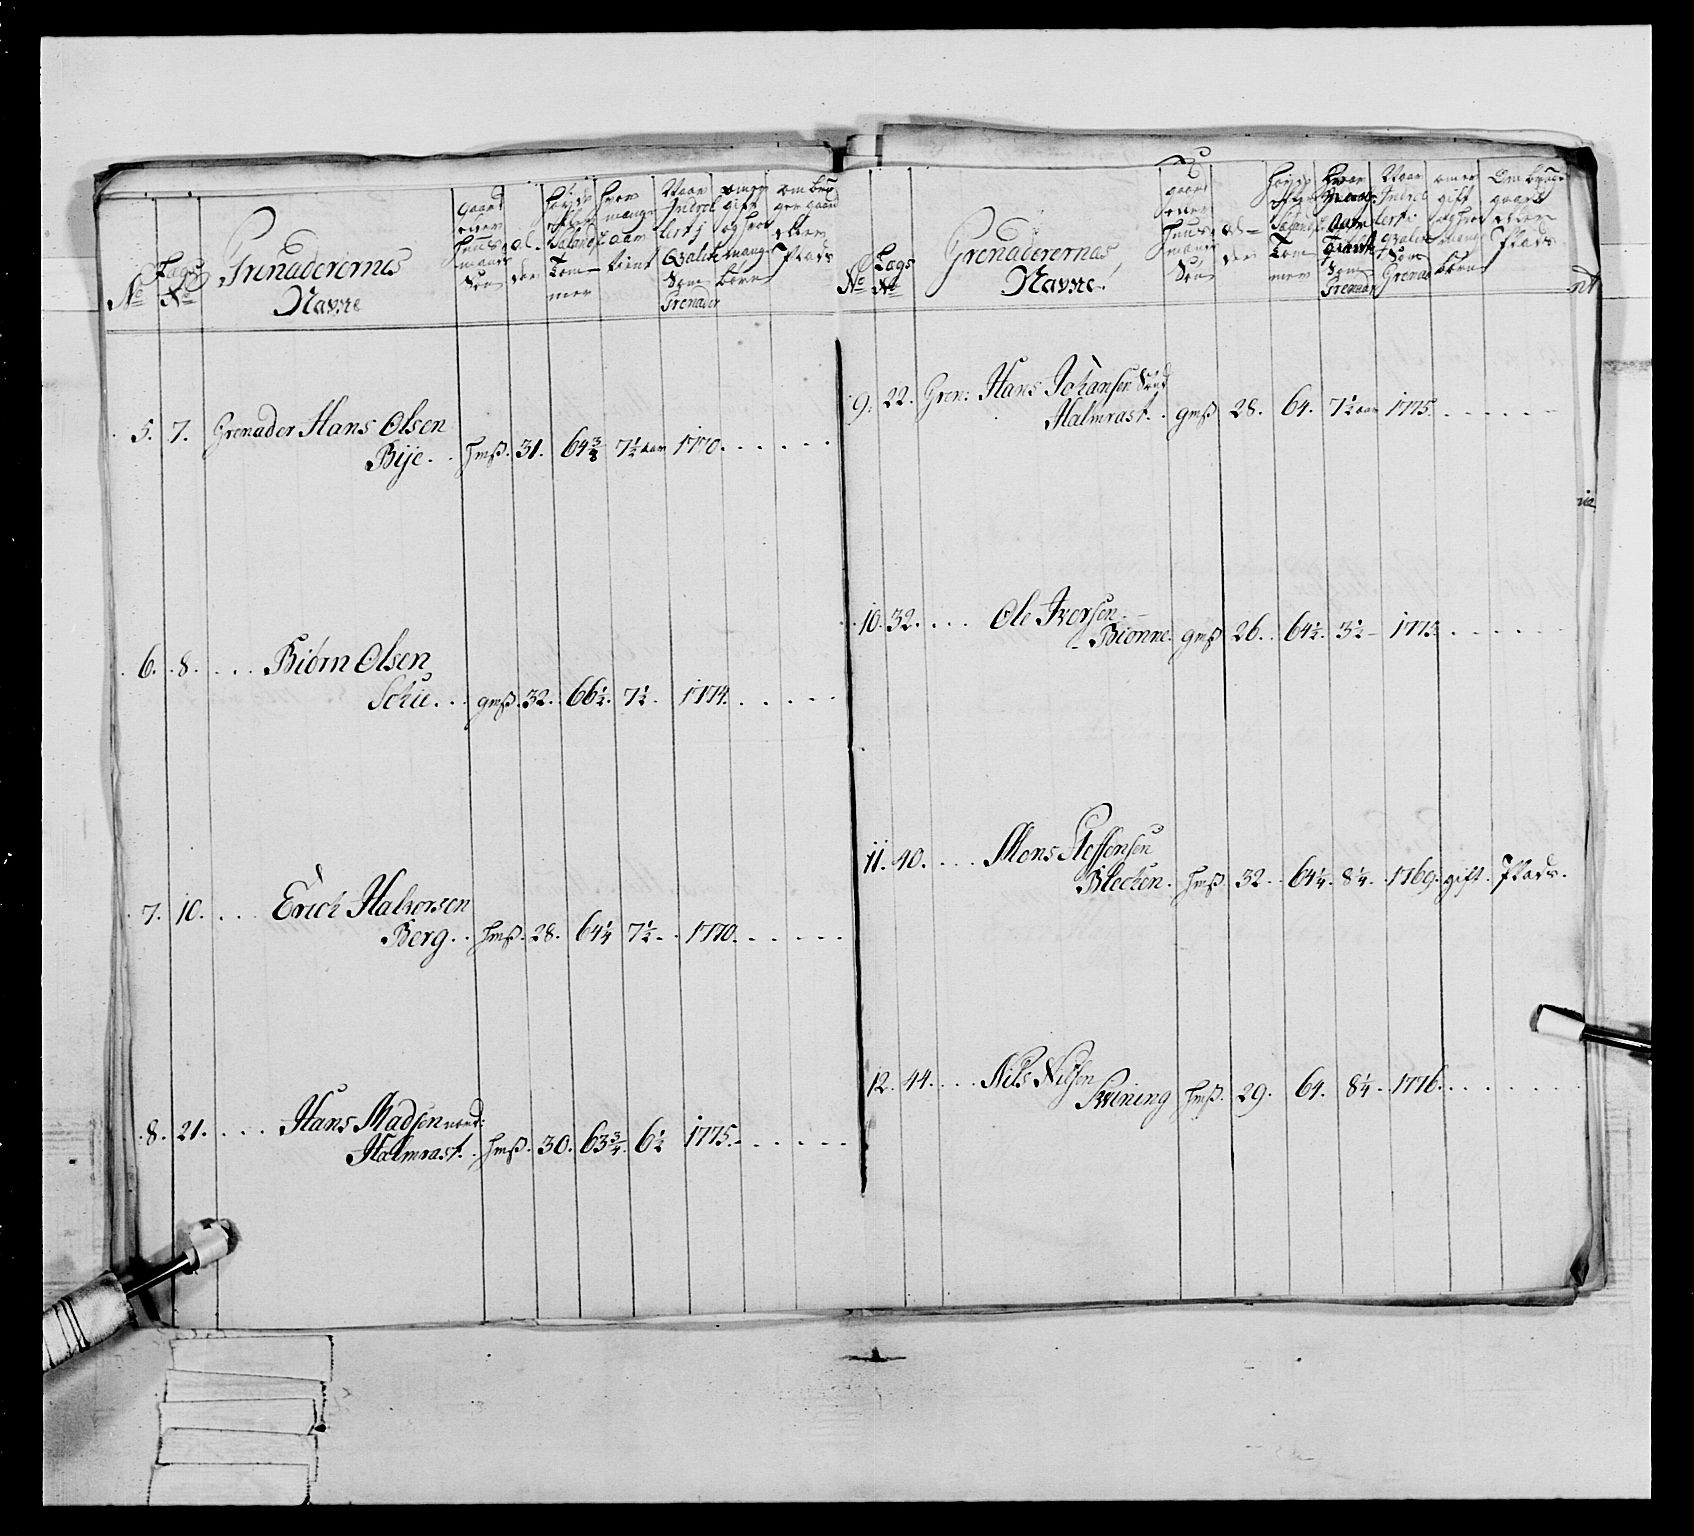 No
Lags No
Grenaderernes
Navne
gaard
eller
huus
mands
Søn
al-
der
høyde
efter
Sælands
Tom-
mer
hvor
mange
aar
tient
Naar
Indrol
lerit
Qvalite
Som
Grenader
om er
gift
og hvor
mange
børn
om brug
ger gaard
eller
Plads
5. 7. Grenader Hans Olsen
Bije . . hmß. 31. 64 3/8 7 1/2 aar 1770. . . . . .
6. 8. . . . Biørn Olsen
Schie . . . gmß. 32. 66 1/2. 7 1/2. 1774. . . . . .
7. 10. . . . Erich Halvorsen
Berg . . hmß. 28. 64 1/4 7 1/2 . . 1770. . . . . .
8. 21. . . . Hans Madsen nord:
Halmrast . . hmß. 30. 63 3/4. 6 1/2 1775. . . . . .
No
Lags
No
Grenaderernes
Navne.
gaard
eller
huus
mands
Søn
al-
der
høyde
efter
Sælands
Tom
mer
Hvor
mange
Aar
tient
Som
Grenader
Naar
Indrol
lerit
Qvalite
Som
Grenad
om er
gift
og hvor
mange
børn
Om bruger
gaard
eller
Plads
9. 22. Gren: Hans Johansen Sünd
Halmrast . . gmß 28. 64. 7 1/2 aar 1775. . . . . .
10. 32. . . . Ole Iversen
Bionne. gmß 26. . 64 1/2. 3 1/2 - 1775. . . . . .
11. 40. . . . Mons Steffensen
Blecken. hmß 32. . 64 1/4. 8 1/4. 1769. gift. Plads.
12. 44. . . . Nils Nilsen
Qvining hmß. 29. 64. 8 1/4. 1776. . . . . .